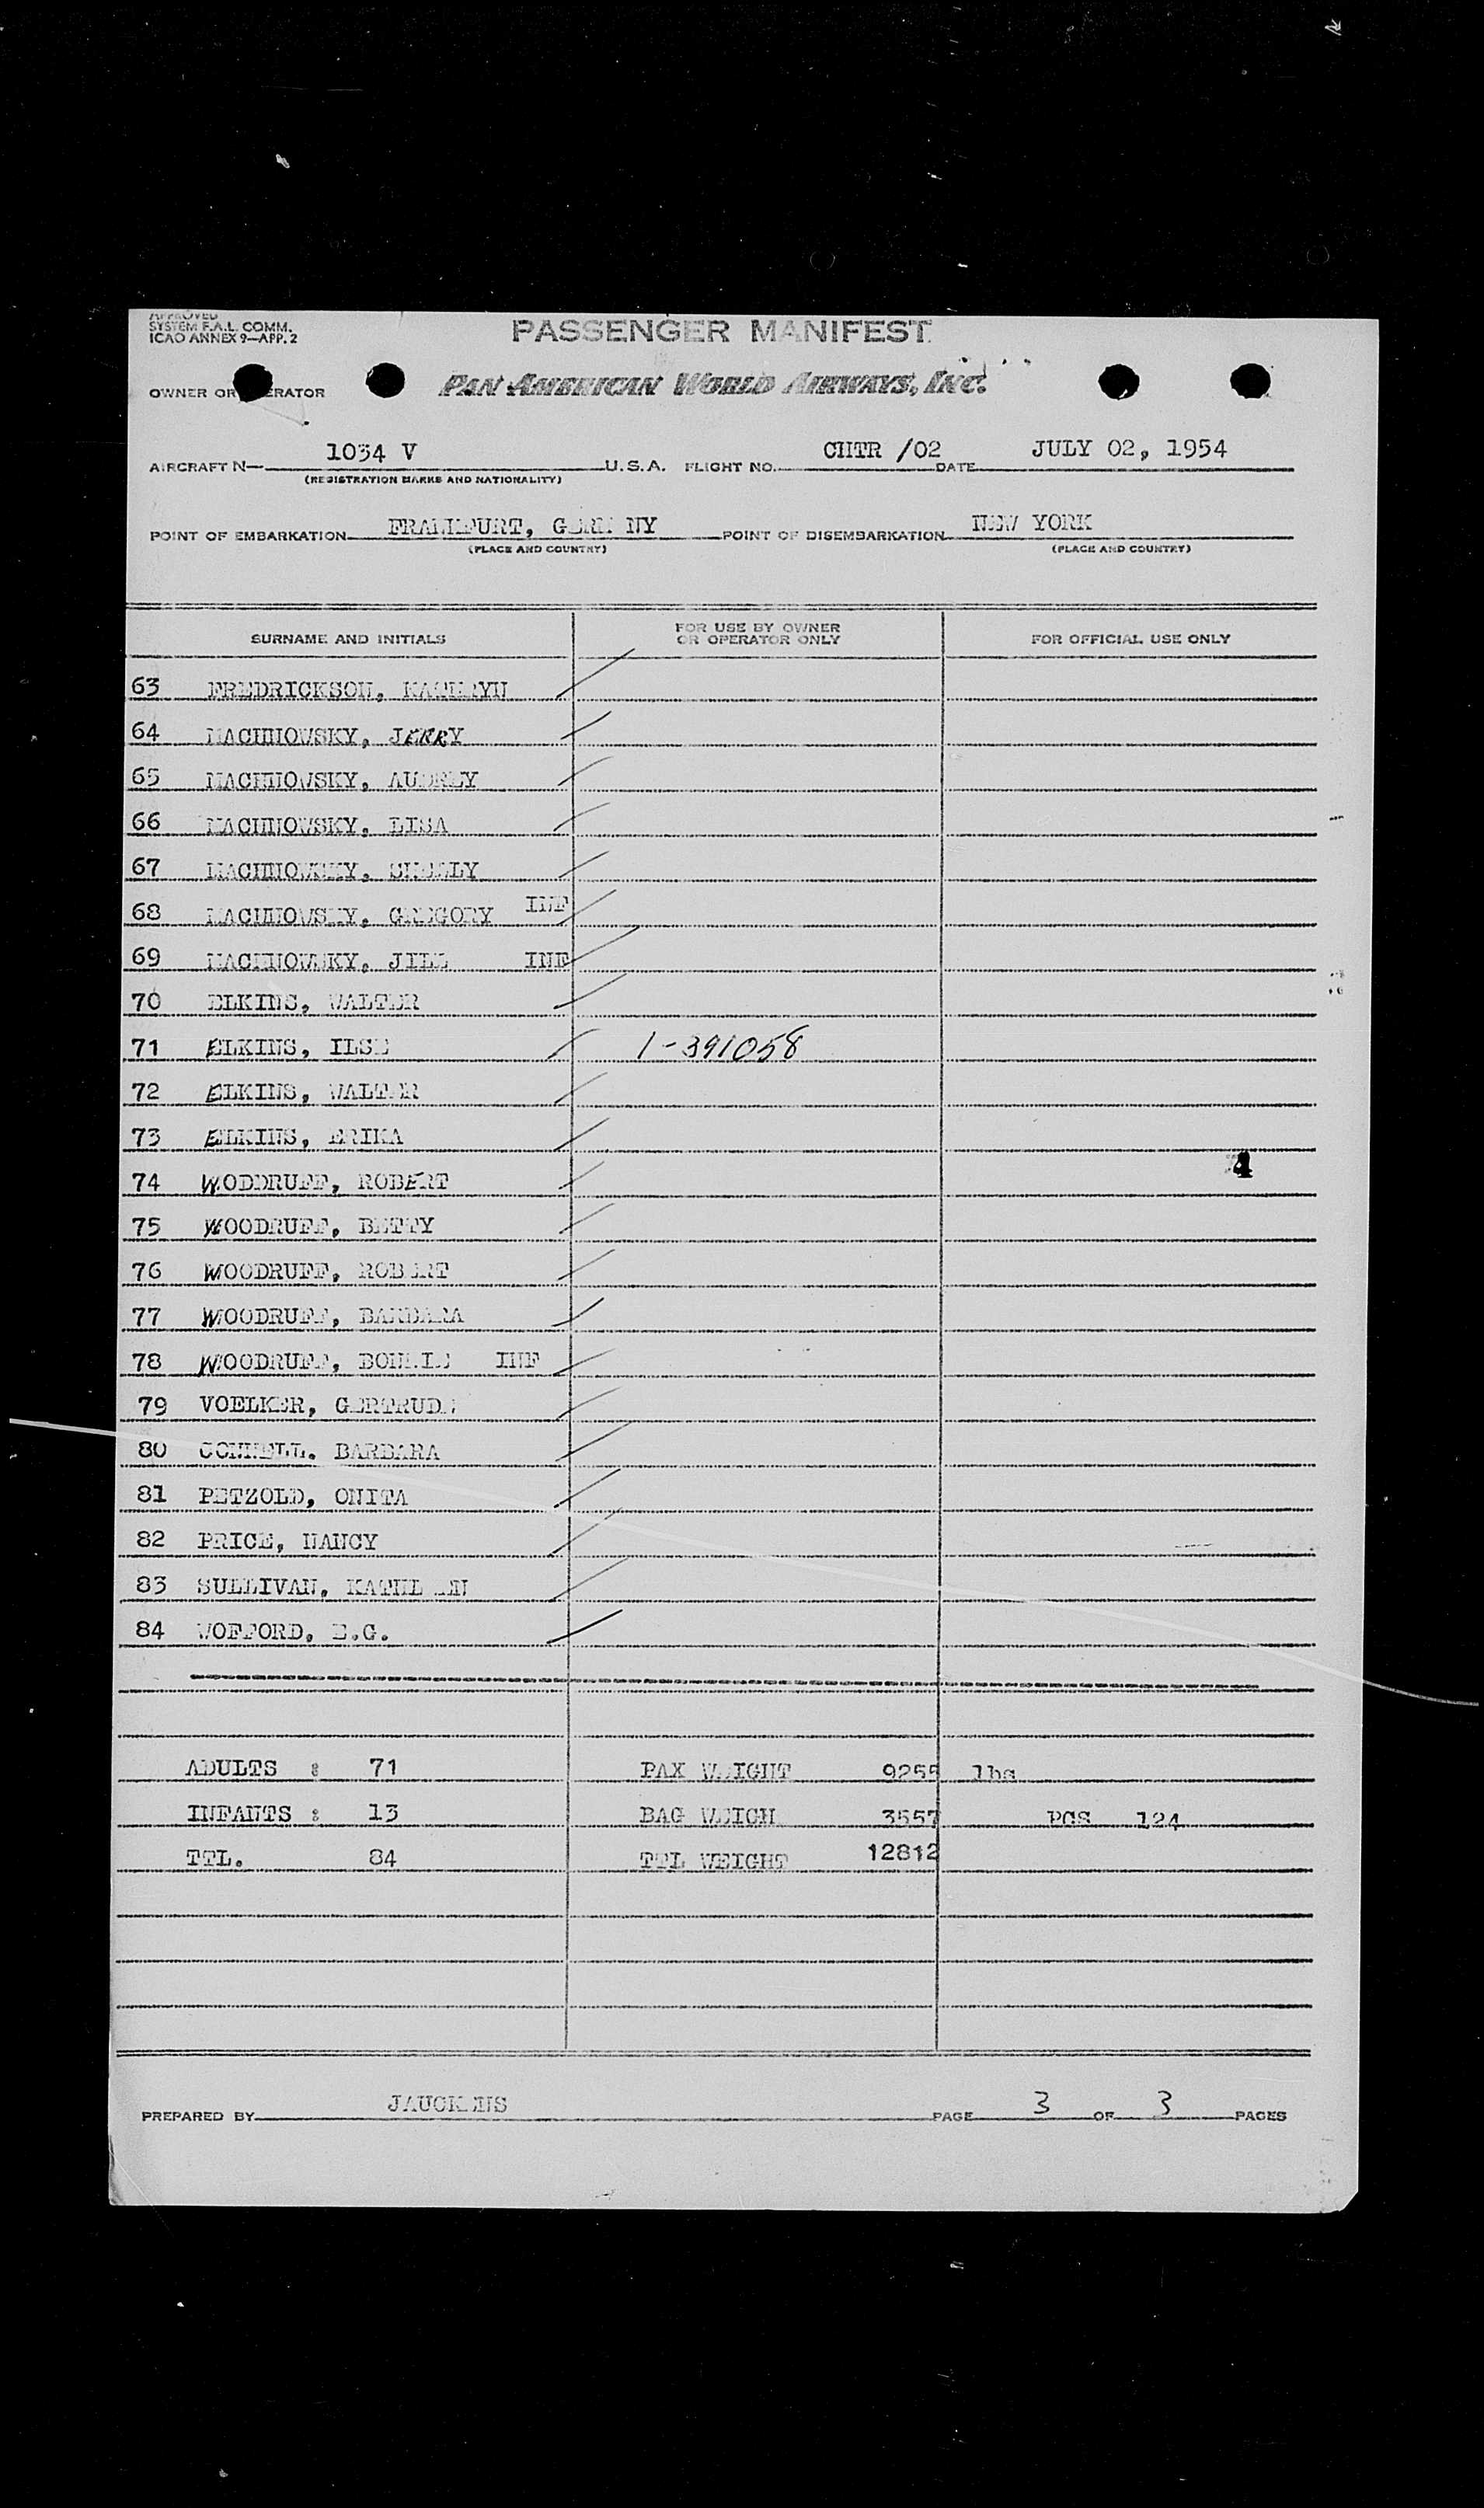 APPROVED
SYSTEM F.A.L. COMM.
ICAO ANNEX 9—APP. 2
PASSENGER MANIFEST
OWNER OR OPERATOR PAN AMERICAN WORLD AIRWAYS, INC.
AIRCRAFT N— 1034 V U.S.A. FLIGHT NO. CHTR /02 DATE JULY 02, 1954
(REGISTRATION MARKS AND NATIONALITY)
POINT OF EMBARKATION FRANKFURT, GERMANY POINT OF DISEMBARKATION NEW YORK
(PLACE AND COUNTRY) (PLACE AND COUNTRY)
SURNAME AND INITIALS FOR USE BY OWNER OR OPERATOR ONLY FOR OFFICIAL USE ONLY
63 FREDRICKSON, KATHRYN
64 MACHNOWSKY, JERRY
65 MACHNOWSKY, AUDREY
66 MACHNOWSKY, LISA
67 MACHNOWSKY, SHELLY
68 MACHNOWSKY, GREGORY INF
69 MACHNOWSKY, JILL INF
70 ELKINS, WALTER
71 ELKINS, ILSE 1-391058
72 ELKINS, WALTER
73 ELKINS, ERIKA
74 WODDRUFF, ROBERT 4
75 WOODRUFF, BETTY
76 WOODRUFF, ROBERT
77 WOODRUFF, BARBARA
78 WOODRUFF, BONNIE INF
79 VOELKER, GERTRUDE
80 CONNELL. BARBARA
81 PETZOLD, ONITA
82 PRICE, NANCY
83 SULLIVAN, KATHLEEN
84 WOFFORD, E.G.
ADULTS : 71 PAX WEIGHT 9255 lbs
INFANTS : 13 BAG WEIGH 3557 PCS 124
TTL. 84 TTL WEIGHT 12812
PREPARED BY JAUCKENS PAGE 3 OF 3 PAGES